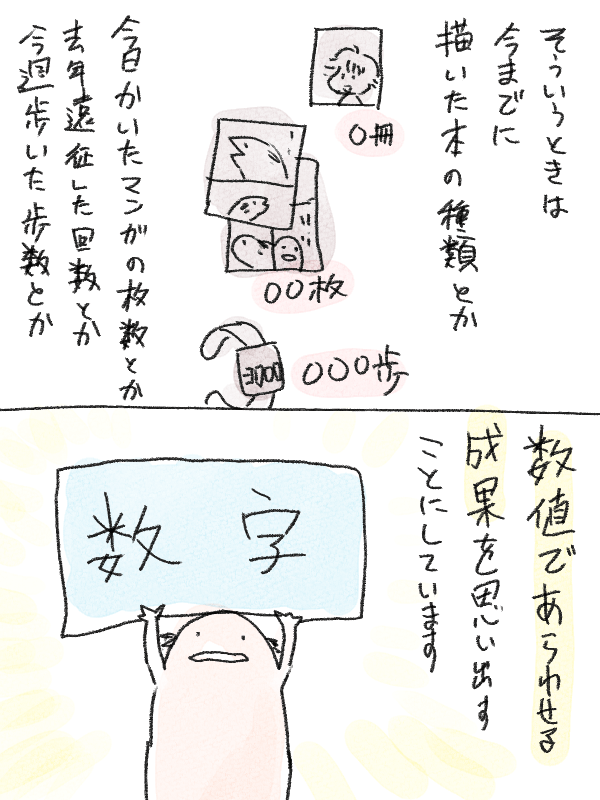 そういうときは
今までに
描いた本の種類とか
〇冊
〇〇枚
3000
〇〇〇歩
今日かいたマンガの枚数とか
去年遠征した回数とか
今週歩いた歩数とか
数値であらわせる
成果を思い出す
ことにしています
数字